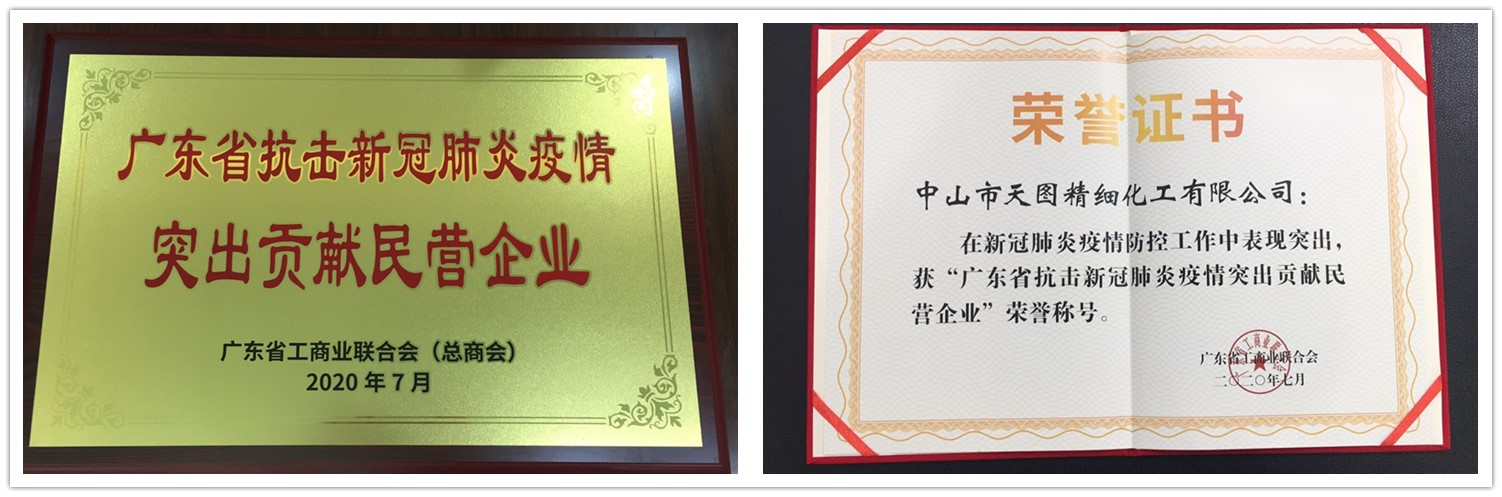 广东省抗击新冠肺炎疫情
突出贡献民营企业
广东省工商业联合会（总商会）
2020年7月
荣誉证书
中山市天图精细化工有限公司：
在新冠肺炎疫情防控工作中表现突出，
获“广东省抗击新冠肺炎疫情突出贡献民
营企业”荣誉称号。
广东省工商业联合会
二〇二〇年七月